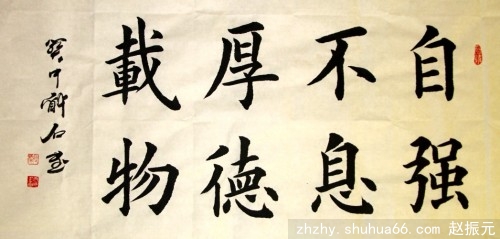 自强
不息
厚德
載物
zhzhy.shuhua66.com 赵振元